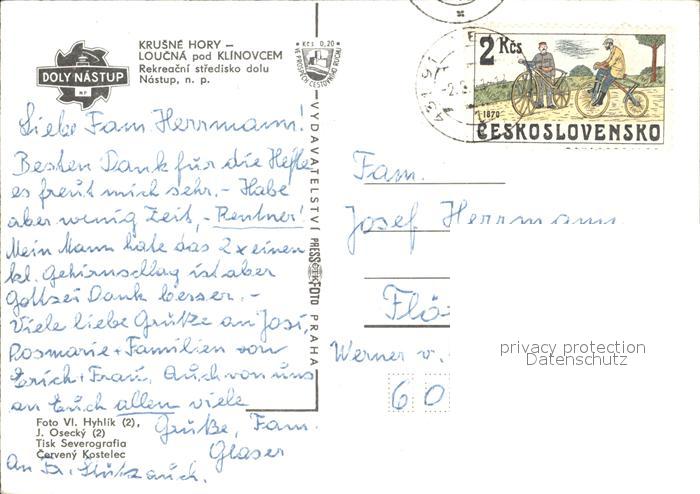 KRUŠNÉ HORY –
LOUČNÁ pod KLÍNOVCEM
Rekreační středisko dolu
Nástup, n. p.
DOLY NÁSTUP
NP
Kčs 0,20
VE PROSPĚCH CESTOVNÍHO RUCHU
2 Kčs
1870
ČESKOSLOVENSKO
43191
Liebe Fam Herrmann!
Besten Dank für die Hefte
es freut mich sehr. – Habe
aber wenig Zeit, – Rentner!
Mein Mann hate das 2x einen
kl. Gehirnschlag ist aber
Gottsei Dank besser. –
Viele liebe Grüße an Josi,
Rosmarie + Familien von
Erich + Frau. Auch von uns
an Euch allen viele
Grüße, Fam.
Glaser
An Fr. auch.
VYDAVATELSTVÍ PRESSFOTO PRAHA
Fam.
Josef Herrmann
Flö
Werner v.
60
privacy protection
Datenschutz
Foto Vl. Hyhlík (2),
J. Osecký (2)
Tisk Severografia
Červený Kostelec